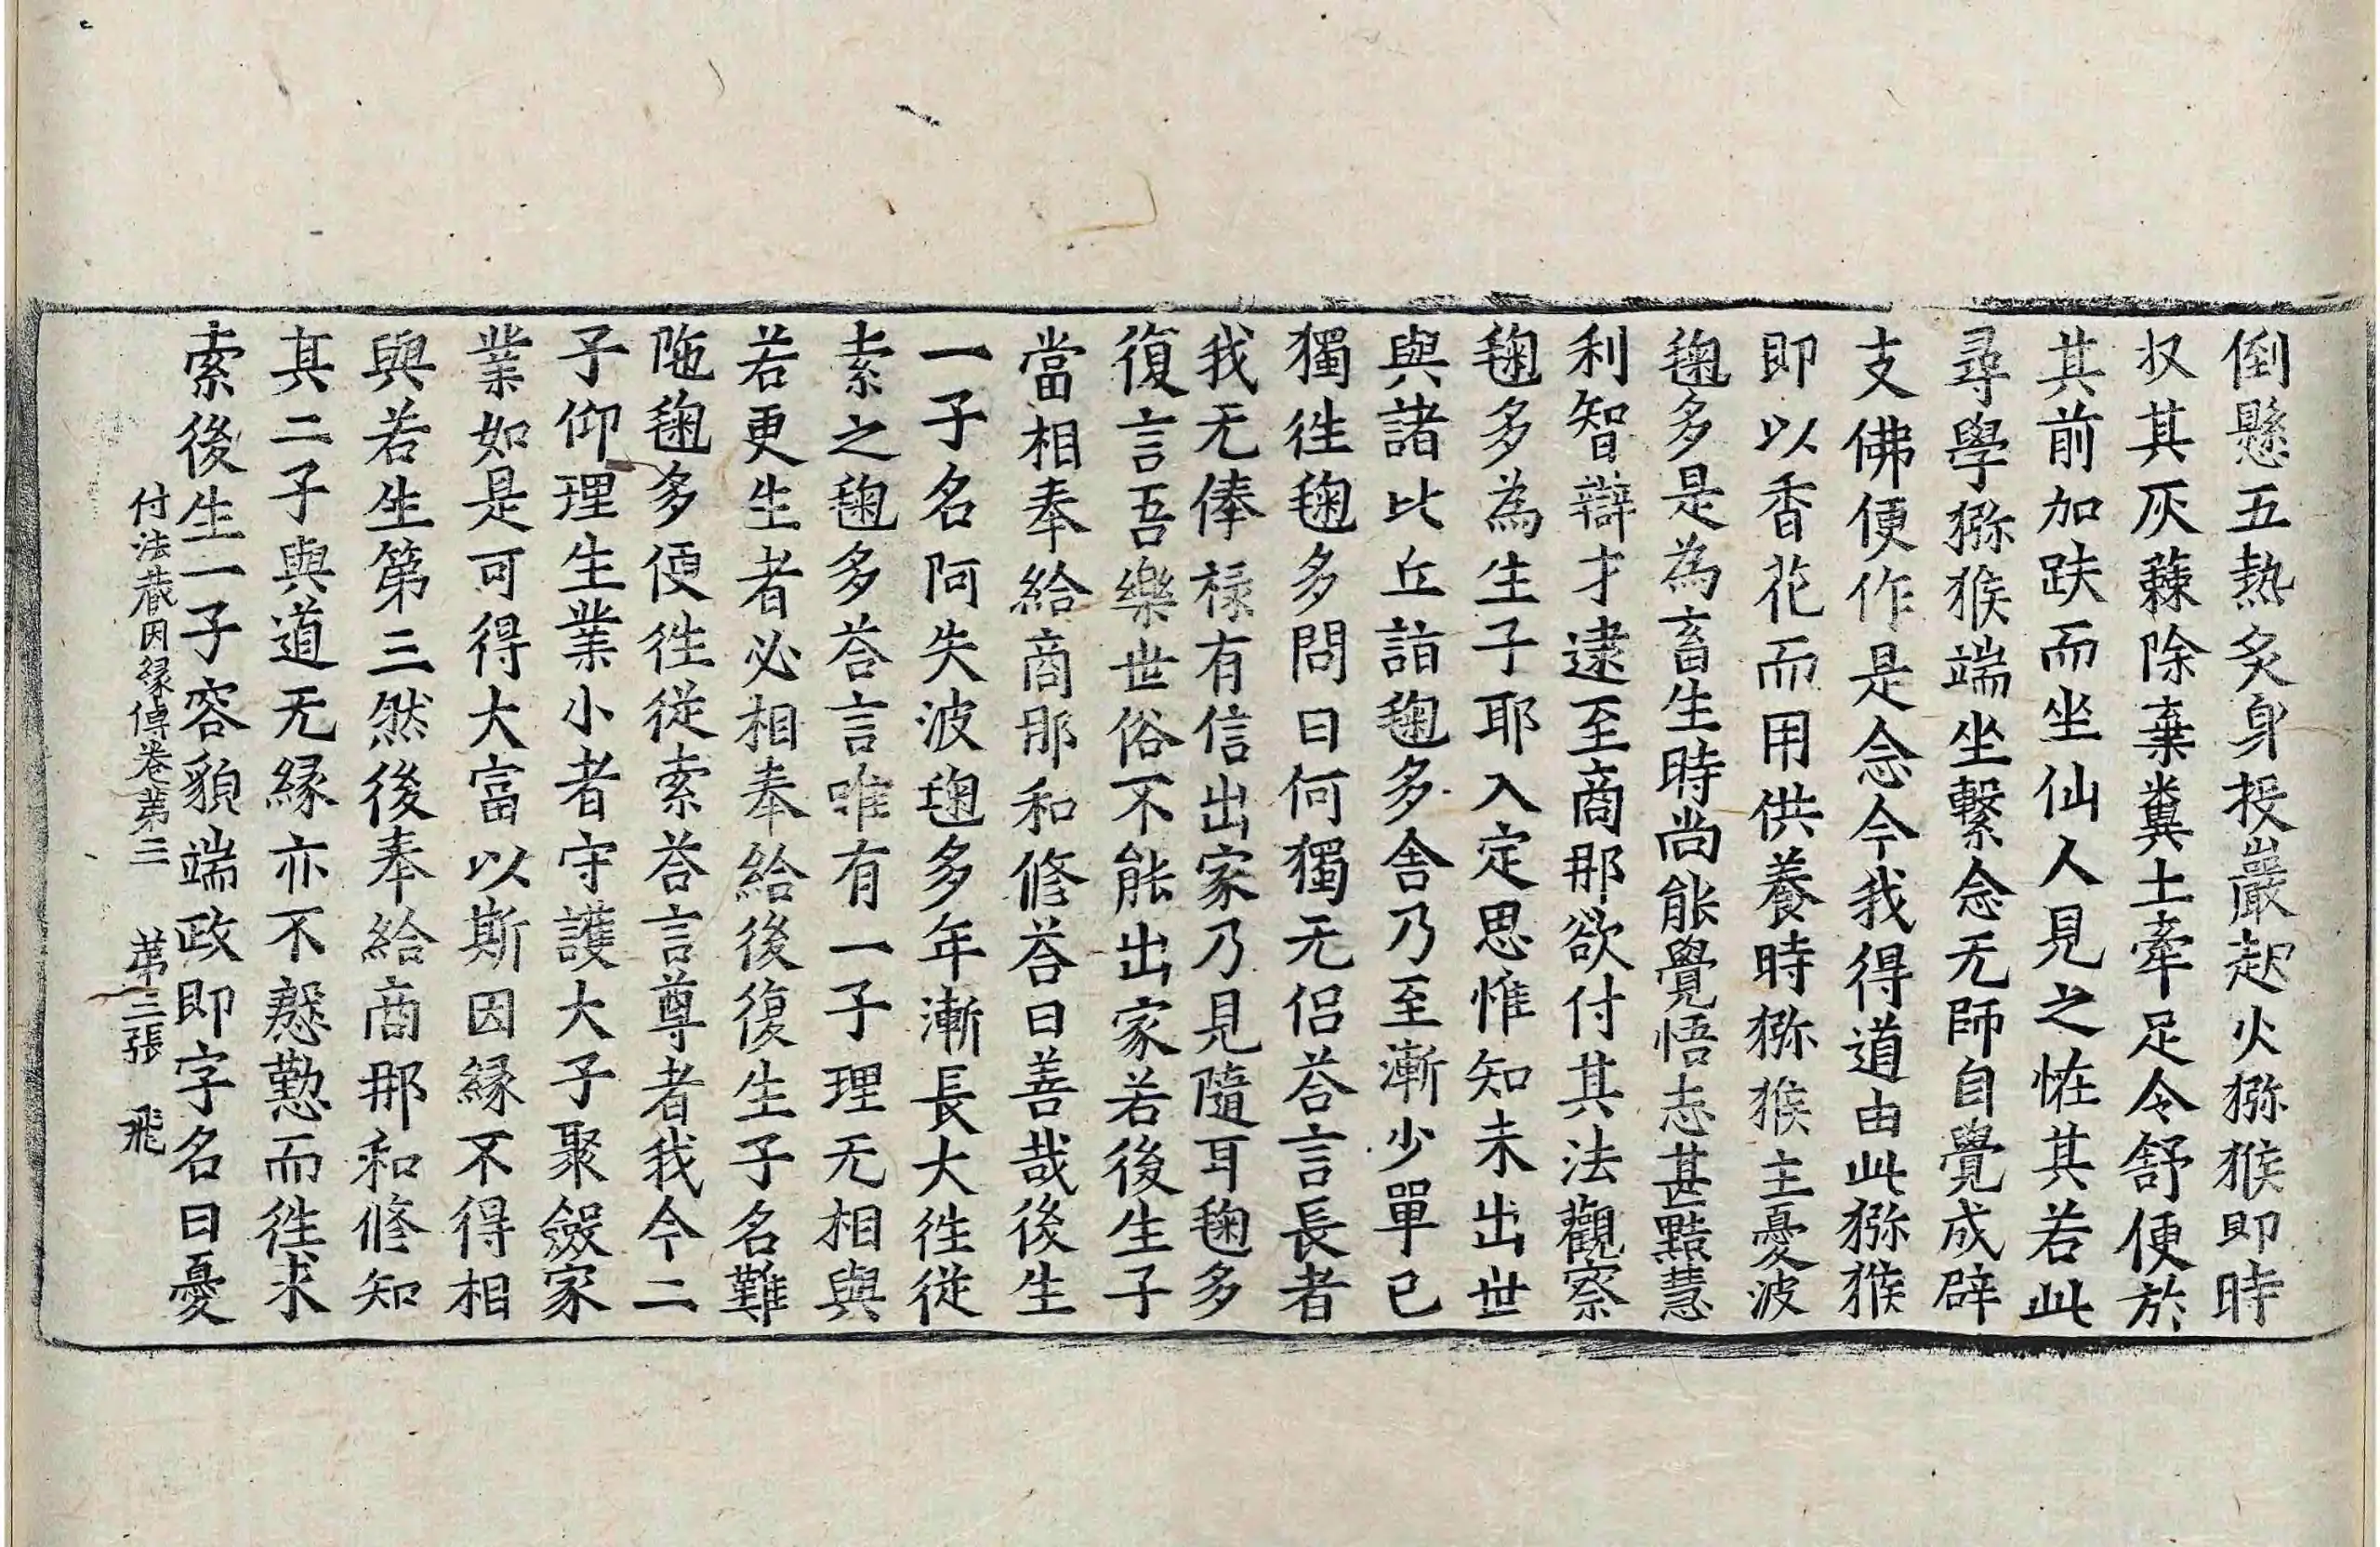 倒懸五熱炙身投巖起火獼猴即時
収其灰蕀除棄糞土牽足令舒便於
其前加趺而坐仙人見之恠其若此
尋學獼猴端坐繫念无師自覺成辟
支佛便作是念今我得道由此獼猴
即以香花而用供養時獼猴主憂波
毱多是為畜生時尚能覺悟志甚黠慧
利智辯才逮至商那欲付其法觀察
毱多為生子耶入定思惟知未出世
與諸比丘詣毱多舍乃至漸少單已
獨往毱多問曰何獨无侣荅言長者
我无俸禄有信出家乃見隨耳毱多
復言吾樂世俗不能出家若後生子
當相奉給商那和修荅曰善哉後生
一子名阿失波毱多年漸長大往從
索之毱多荅言唯有一子理无相與
若更生者必相奉給後復生子名難
陁毱多便往從索荅言尊者我今二
子仰理生業小者守護大子聚斂家
業如是可得大富以斯因緣不得相
與若生第三然後奉給商那和修知
其二子與道无緣亦不慇懃而往求
索後生一子容貌端政即字名曰憂
付法蔵因縁傳卷第三　第三張　飛